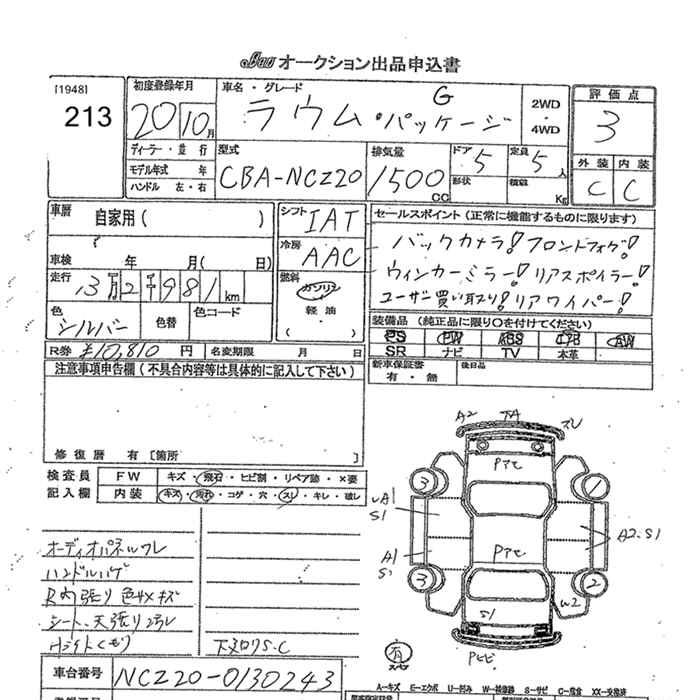 オークション出品申込書
[1948]
213
初度登録年月
20 10月
車名・グレード
G
ラウム・パッケージ
2WD
・
4WD
評価点
3
外装 内装
C C
ディーラー・並行
モデル年式 年
ハンドル 左・右
型式
CBA-NCZ20
排気量
1500
CC
ドア 5
形状
定員 5人
積載 Kg
車歴
自家用( )
車検 年 月( 日)
走行
3万2千981km
色
シルバー
色替
色コード
シフト IAT
冷房 AAC
燃料
ガソリン
・
軽油
( )
セールスポイント(正常に機能するものに限ります)
バックカメラ! フロントフォグ!
ウィンカーミラー! リアスポイラー!
ユーザー買い取り! リアワイパー!
装備品(純正品に限り○を付けてください)
PS PW ABS エアB AW
SR ナビ TV 本革
新車保証書
有・無
後日品
R券 ¥10,810円 名変期限 月 日
注意事項申告欄(不具合内容等は具体的に記入して下さい)
修復歴 有 [箇所 ]
検査員
記入欄
FW キズ・飛石・ヒビ割・リペア跡・×要
内装 キズ・汚れ・コゲ・穴・スレ・キレ・破レ
オーディオパネルワレ
ハンドルハゲ
シート、天張り
下廻りS・C
A2
スレ
3
A1
S1
A1
3
A2・S1
2
W2
S1
有
車台番号
NCZ20-0130243
A=キズ E=エクボ U=凹み W=補修跡 S=サビ C=腐食 XX=交換済